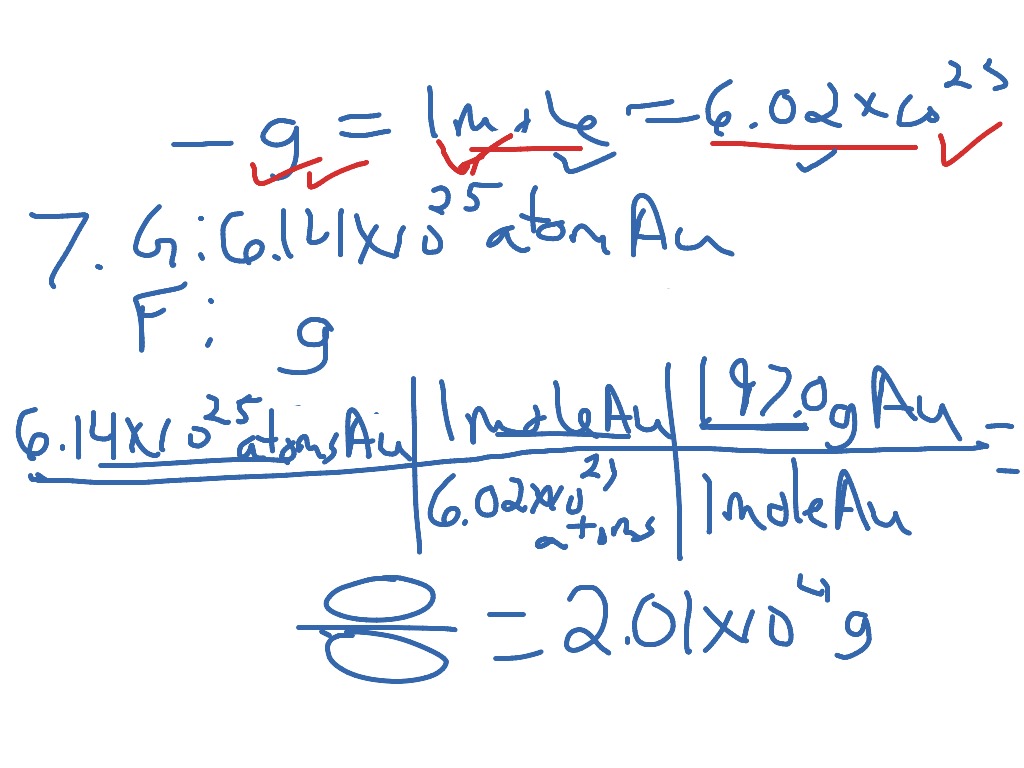 _ g = 1 mole = 6.02 x 10^23
7. G: 6.141 x 10^25 atom Au
F: g
6.14 x 10^25 atoms Au | 1 mole Au | 197.0 g Au =
6.02 x 10^23 atoms | 1 mole Au
= 2.01 x 10^4 g